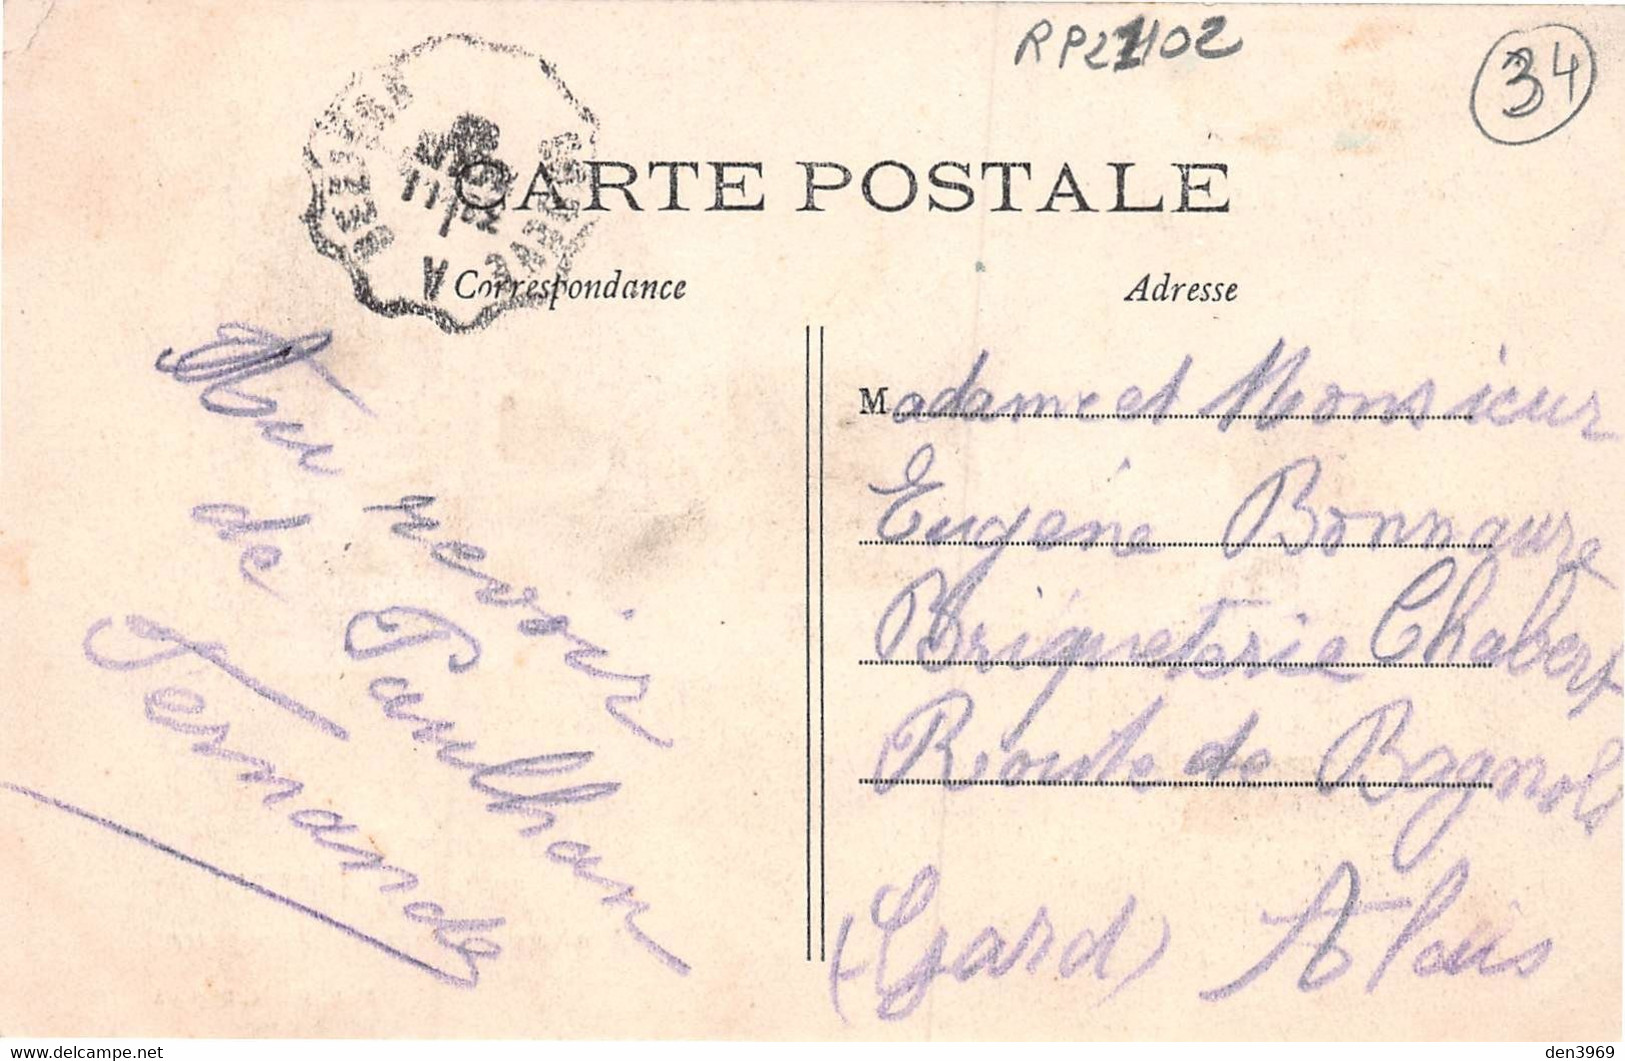 RP21102
34
BEZIERS A
CARTE POSTALE
Correspondance
Adresse
Au revoir
de Paulhan
Fernande
Madame et Monsieur
Eugène Bonnaure
Briqueterie Chabert
Route de Bagnols
(Gard) Alais
den3969